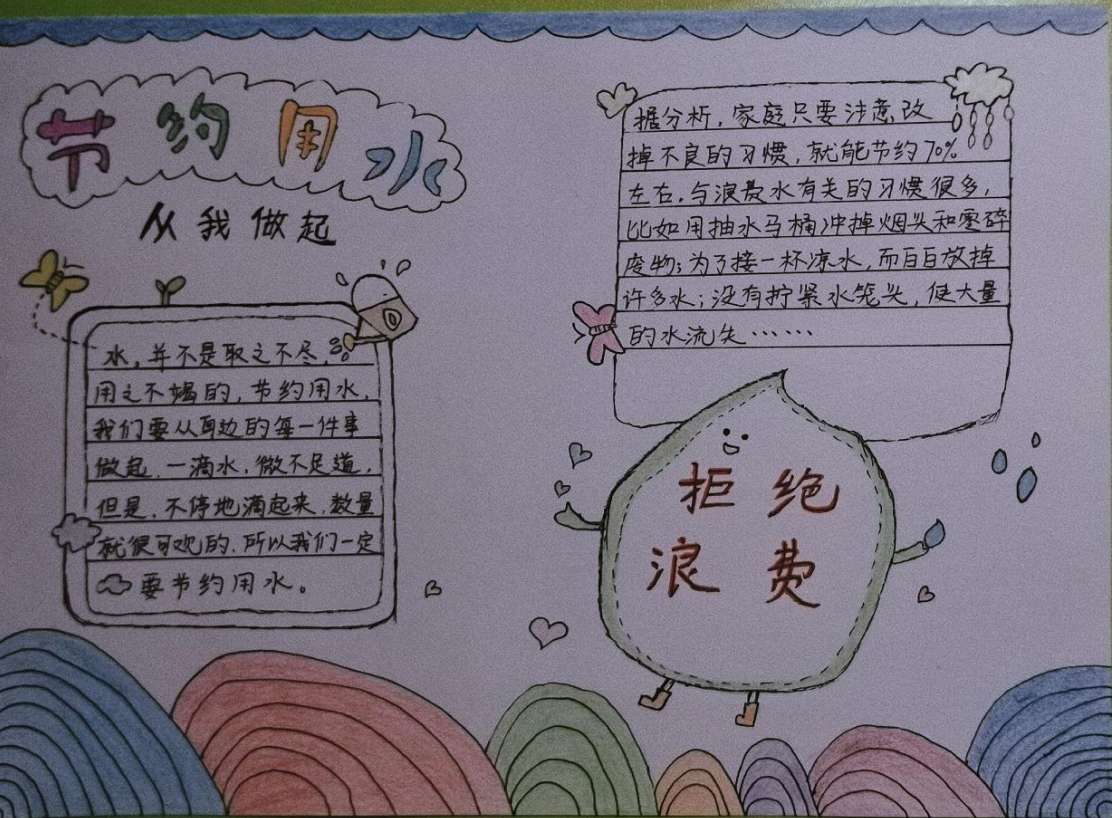 节约用水
从我做起
水，并不是取之不尽，
用之不竭的，节约用水，
我们要从身边的每一件事
做起．一滴水，微不足道，
但是．不停地滴起来，数量
就很可观的．所以我们一定
要节约用水。
据分析，家庭只要注意改
掉不良的习惯，就能节约70%
左右．与浪费水有关的习惯很多，
比如用抽水马桶冲掉烟头和零碎
废物；为了接一杯凉水，而白白放掉
许多水；没有拧紧水笼头，使大量
的水流失……
拒绝
浪费